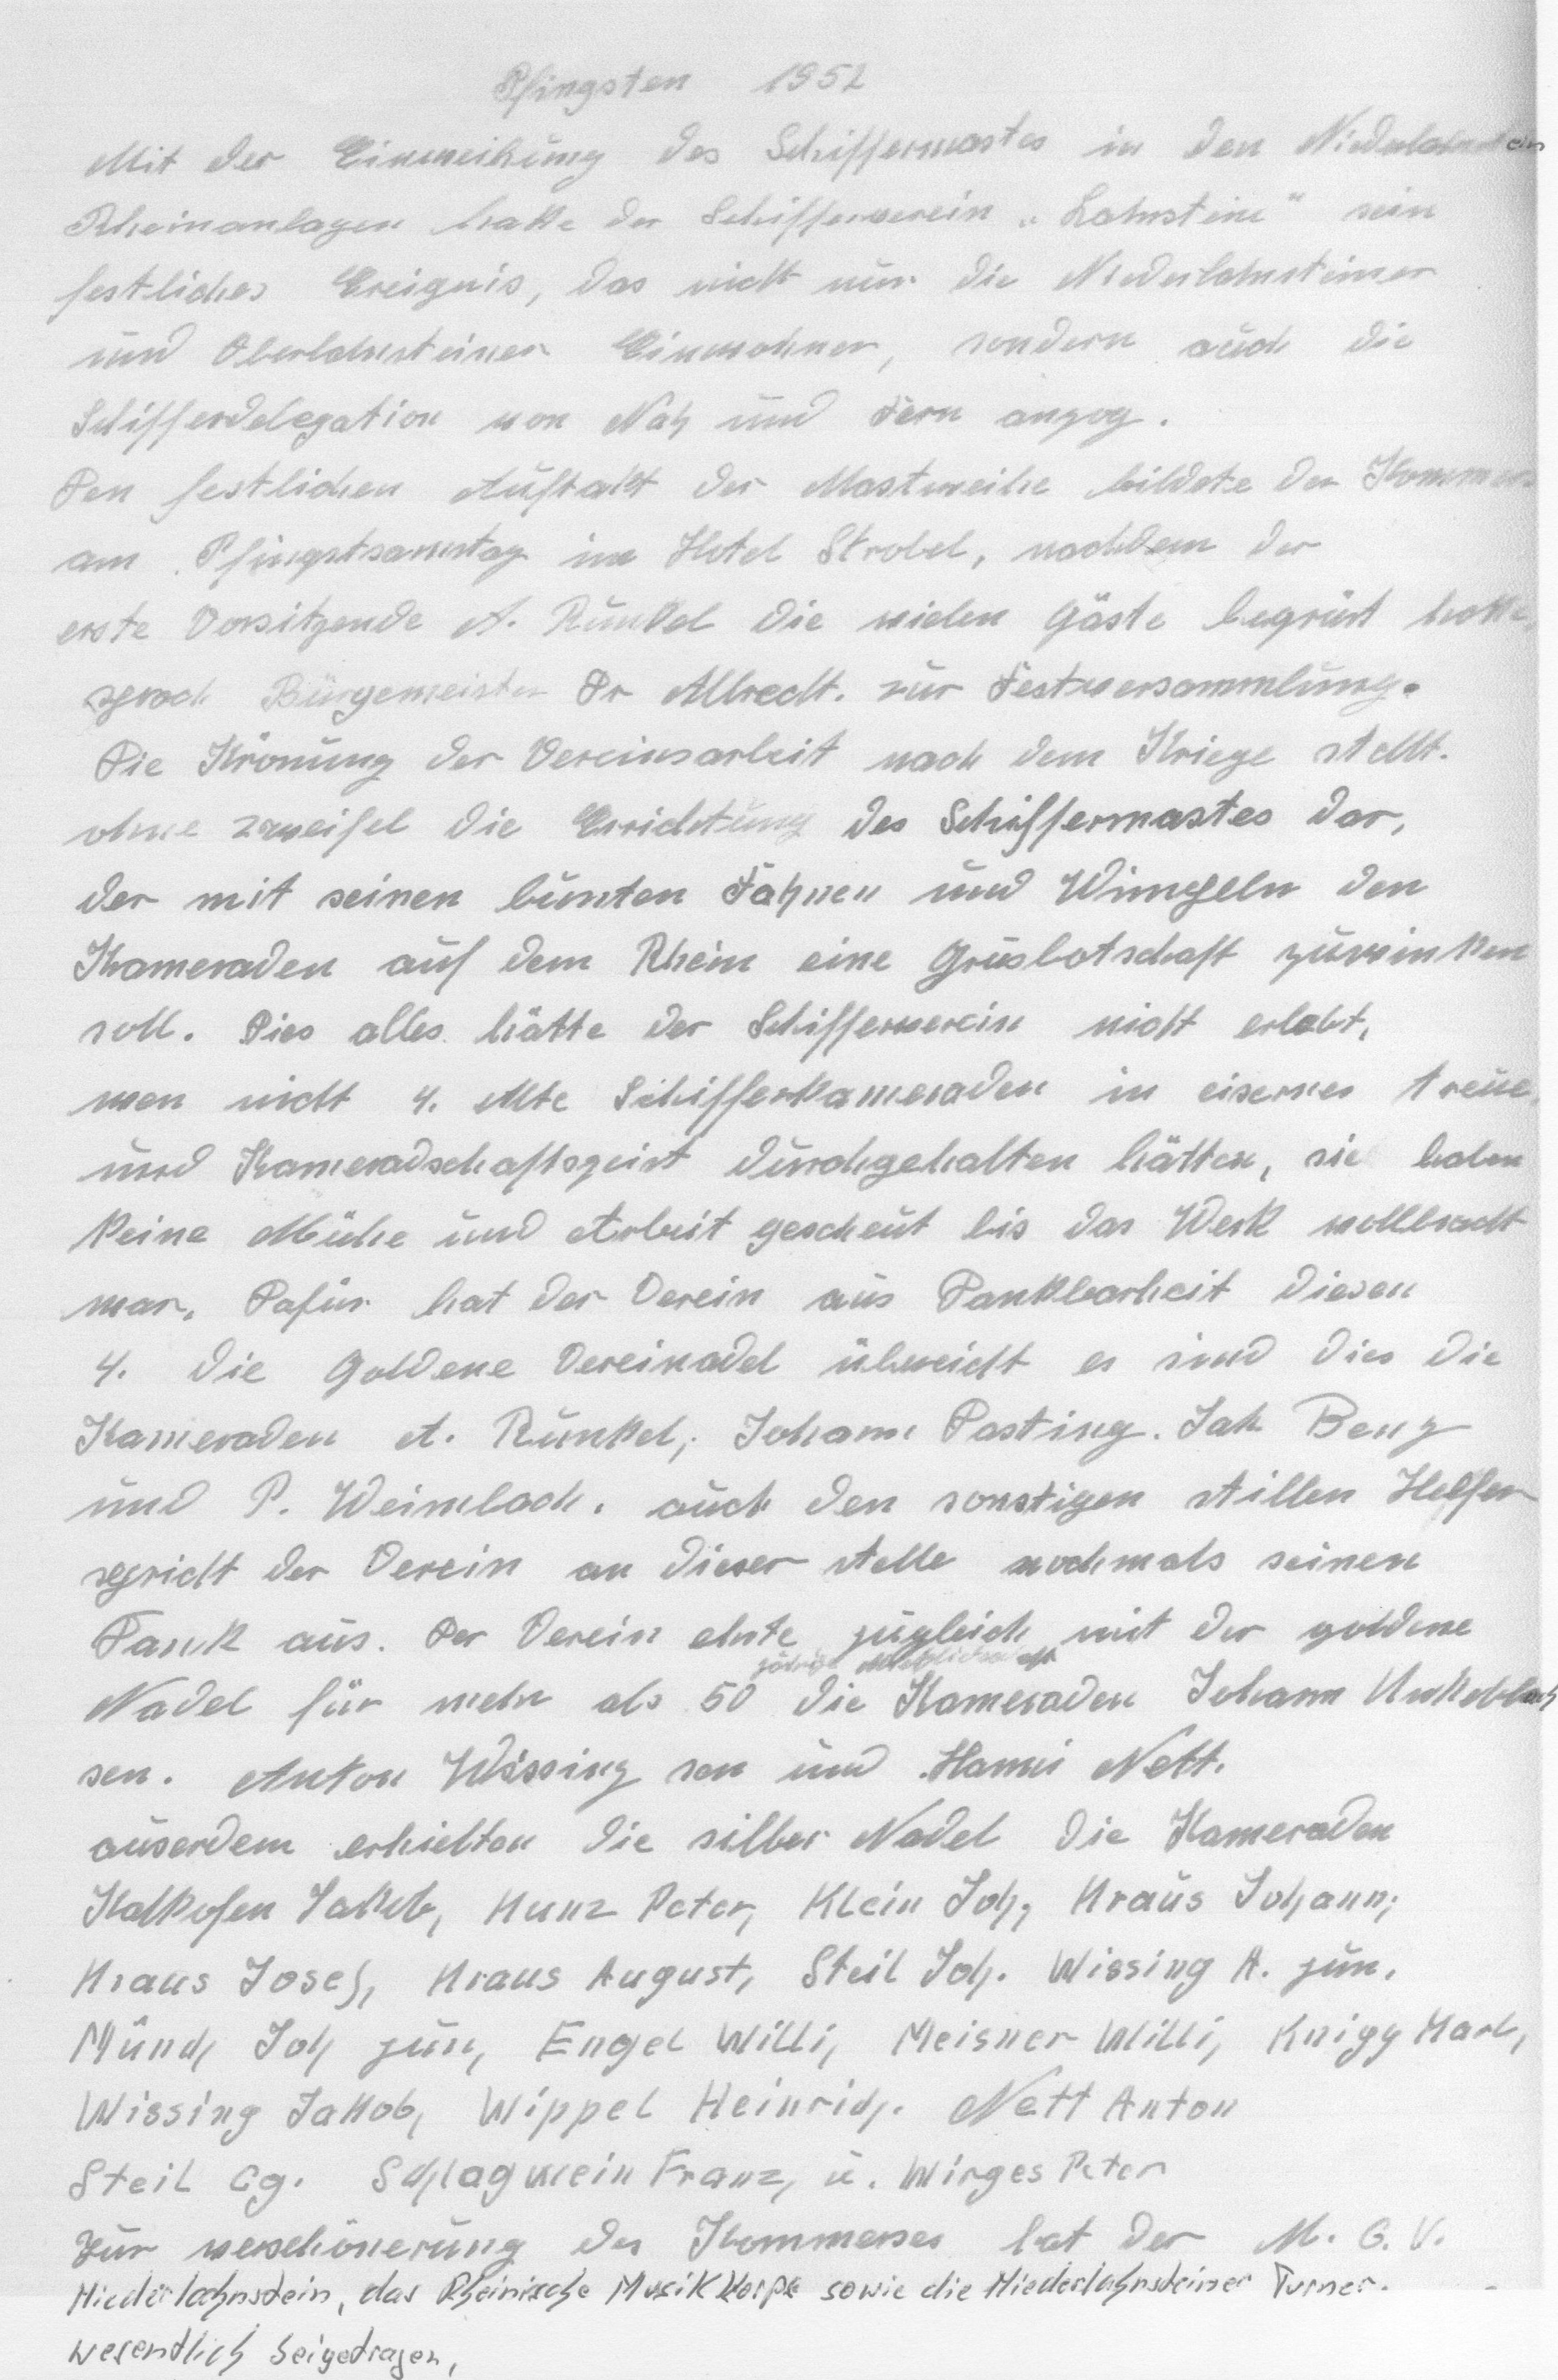 Pfingsten 1952
Mit der Einweihung des Schiffermastes in den Niederlahnstein
Rheinanlagen hatte der Schifferverein „Lahnstein" sein
festliches Ereignis, das nicht nur die Niederlahnsteiner
und Oberlahnsteiner Einwohner, sondern auch die
Schifferdelegation von Nah und Fern anzog.
Den festlichen Auftakt der Mastweihe bildete der Kommers
am Pfingstsamstag im Hotel Strobel, nachdem der
erste Vorsitzende A. Runkel die vielen Gäste begrüst hatte,
sprach Bürgemeister Dr Albrecht. zur Festversammlung.
Die Krönung der Vereinsarbeit nach dem Kriege stellt.
ohne zweifel die Errichtung des Schiffermastes dar,
der mit seinen bunten Fahnen und Wimpeln den
Kameraden auf dem Rhein eine Grusbotschaft zuwinken
soll. Dies alles hätte der Schifferverein nicht erlebt,
wen nicht 4. Alte Schifferkameraden in eiserner treue,
und Kameradschaftsgeist durchgehalten hätten, sie haben
keine Mühe und Arbeit gescheut bis das Werk vollbracht
war. Dafür hat der Verein aus Dankbarheit diesen
4. die Goldene Vereinadel überreicht es sind dies die
Kameraden A. Runkel, Johann Pasting. Jak Benz
und P. Weimbach. auch den sonstigen stillen Helfer
spricht der Verein an dieser stelle nochmals seinen
Dank aus. Der Verein ehrte zugleich mit der goldene
jährige Mitgliedschaft
Nadel für mehr als 50 die Kameraden Johann
sen. Anton Wissing sen und Hanni Nett.
auserdem erhielten die silber Nadel die Kameraden
Kalkofen Jakob, Kunz Peter, Klein Joh, Kraus Johann,
Kraus Josef, Kraus August, Steil Joh. Wissing A. jun.
Münch Joh jun, Engel Willi, Meisner Willi, Knigg Karl,
Wissing Jakob, Wippel Heinrich. Nett Anton
Steil Gg. Schlagwein Franz, u. Wirges Peter
Zur verschönerung des Kommerses hat der M. G. V.
Niederlahnstein, das Rheinische Musikkorps sowie die Niederlahnsteiner Turner.
wesentlich beigetragen,